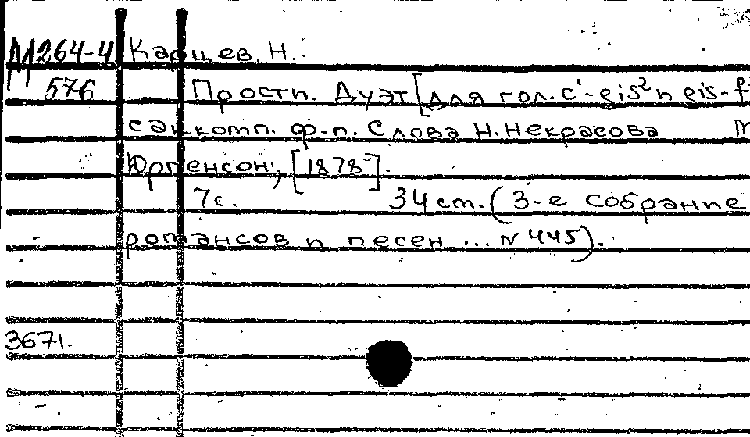 М 264-4 Карцев, Н.
576 Прости. Дуэт [для гол. c'-gis² и eis-f
с аккомп. ф-п. Слова Н. Некрасова
Юргенсон, [1878].
7с. 34 см. (3-е собрание
романсов и песен ... № 445).
3671.